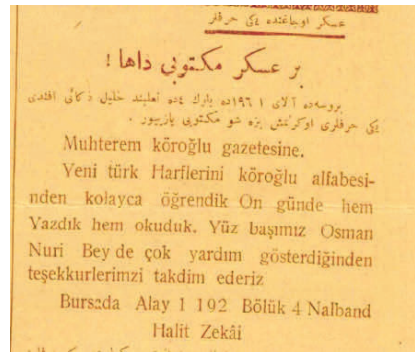 عسكر اوجاغنده يكى حرفلر
بر عسكر مكتوبى داها !
بروسه‌ده آلاى ١٩٦١ده بلوك ٤ده نعلبند خليل ذكائى افندى
يكى حرفلرى اوكرنمش بزه شو مكتوبى يازييور .
Muhterem köroğlu gazetesine.
Yeni türk Harflerini köroğlu alfabesi-
nden kolayca öğrendik On günde hem
Yazdık hem okuduk. Yüz başımız Osman
Nuri Bey de çok yardım gösterdiğinden
teşekkurlerimzi takdim ederiz
Bursada Alay 1 192 Bölük 4 Nalband
Halit Zekâi